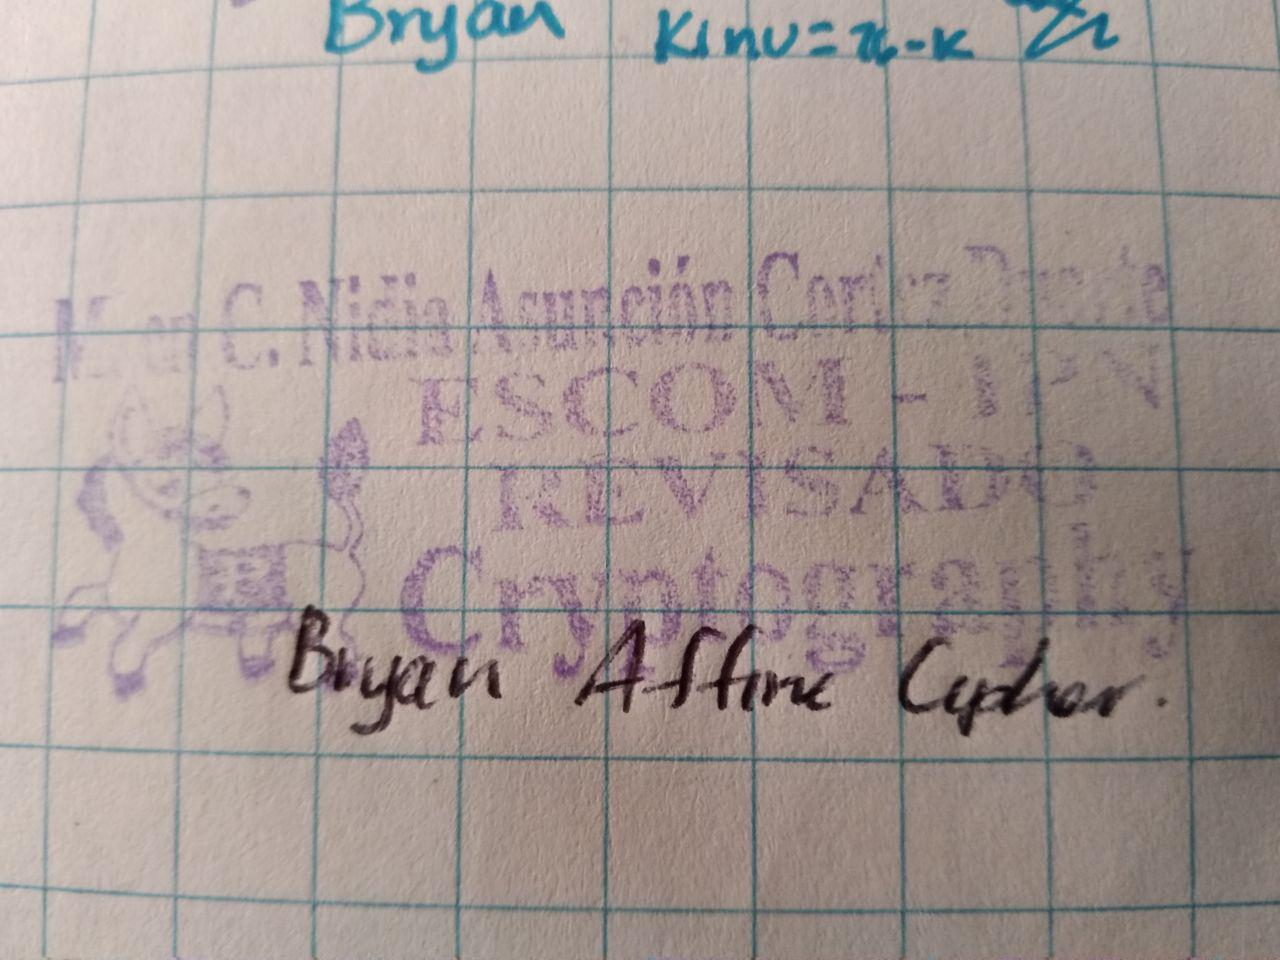 Bryan Kinv = n - k
M. en C. Nidia Asunción Cortez Duarte
ESCOM - IPN
REVISADO
Cryptography
Bryan Affine Cypher.